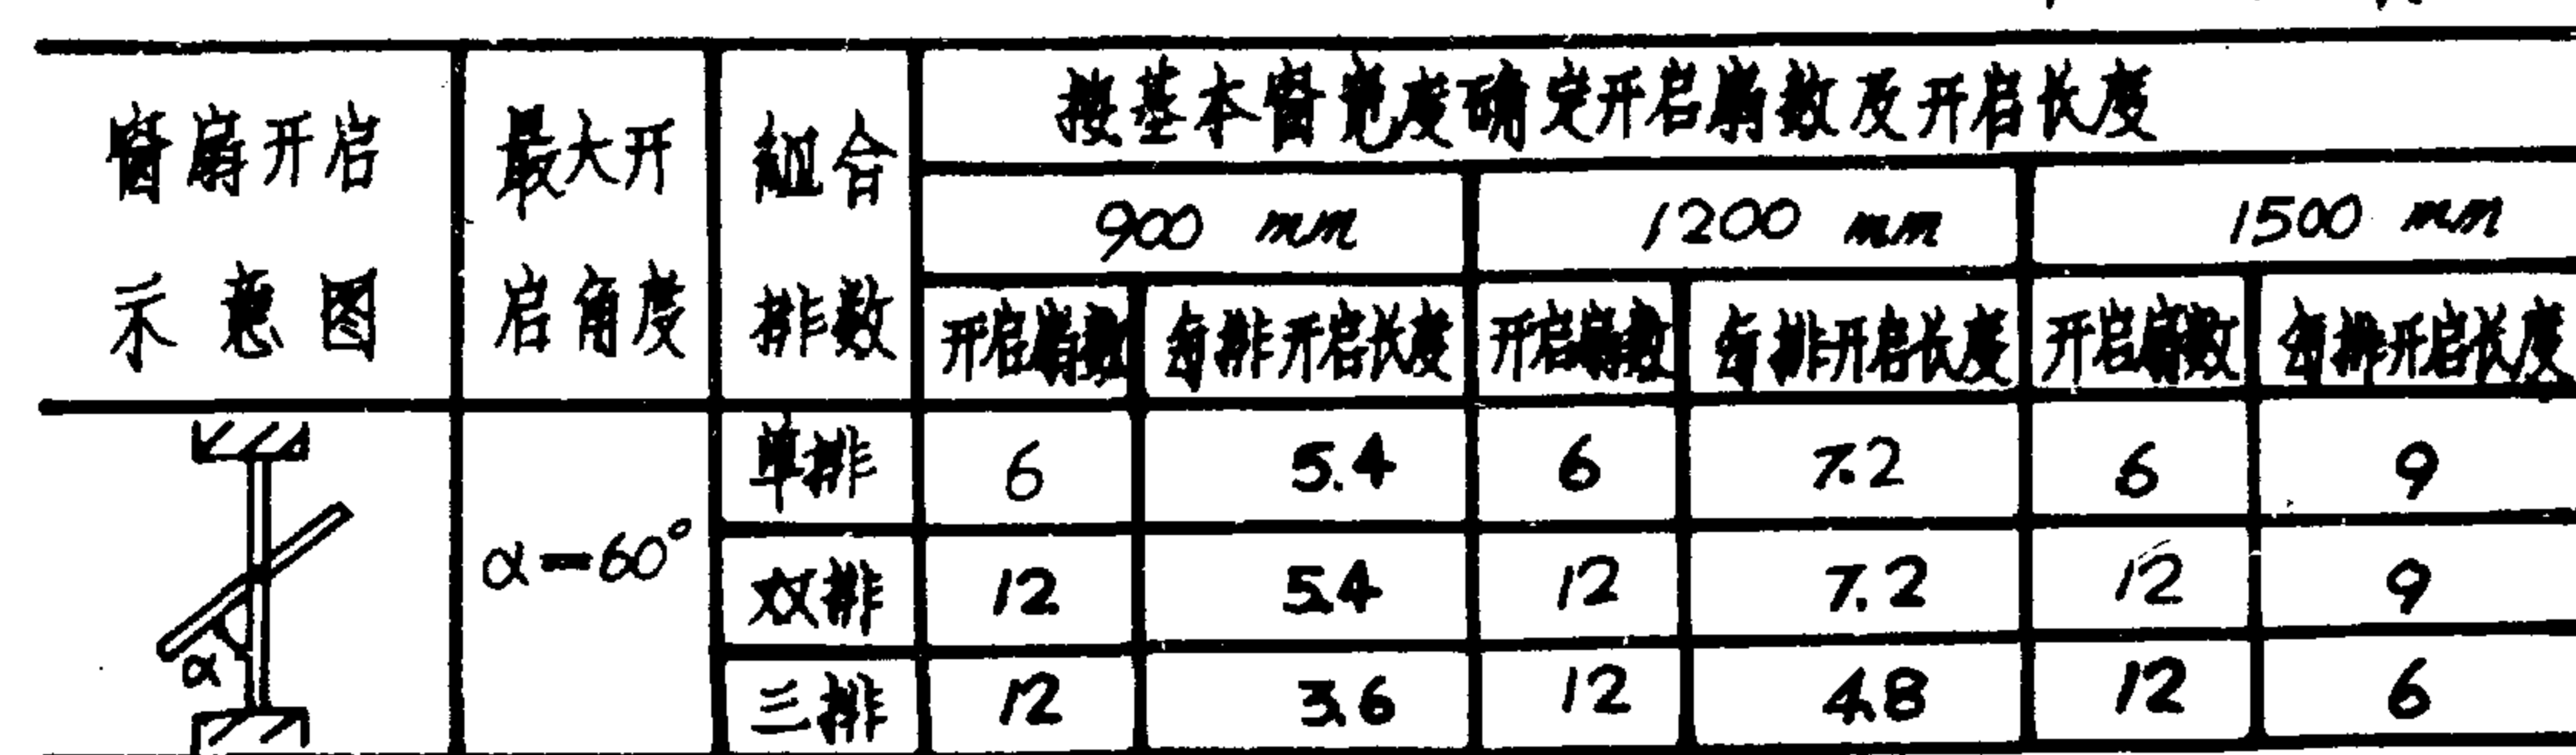 窗扇开启
示意图
最大开
启角度
组合
排数
按基本窗宽度确定开启扇数及开启长度
900 mm 1200 mm 1500 mm
开启扇数 每排开启长度 开启扇数 每排开启长度 开启扇数 每排开启长度
α=60°
单排 6 5.4 6 7.2 6 9
双排 12 5.4 12 7.2 12 9
三排 12 3.6 12 4.8 12 6
α